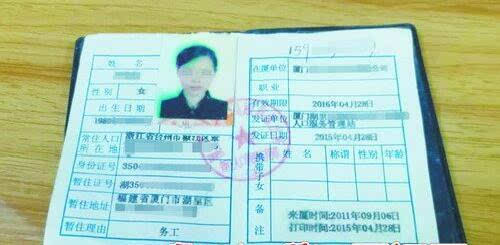 姓名
性别 女
出生日期 198
常住人口所在地 浙江省台州市椒江区
身份证号 350
暂住证号 湖350
暂住地址 福建省厦门市湖里区
暂住理由 务工
159
在厦单位 厦门 公司
职业
有效期限 2016年04月28日
发证单位 厦门湖里 人口服务管理站
发证日期 2015年04月28日
携带子女 姓名 称谓 性别 年龄
备注 来厦时间:2011年09月06日
打印时间:2015年04月28日